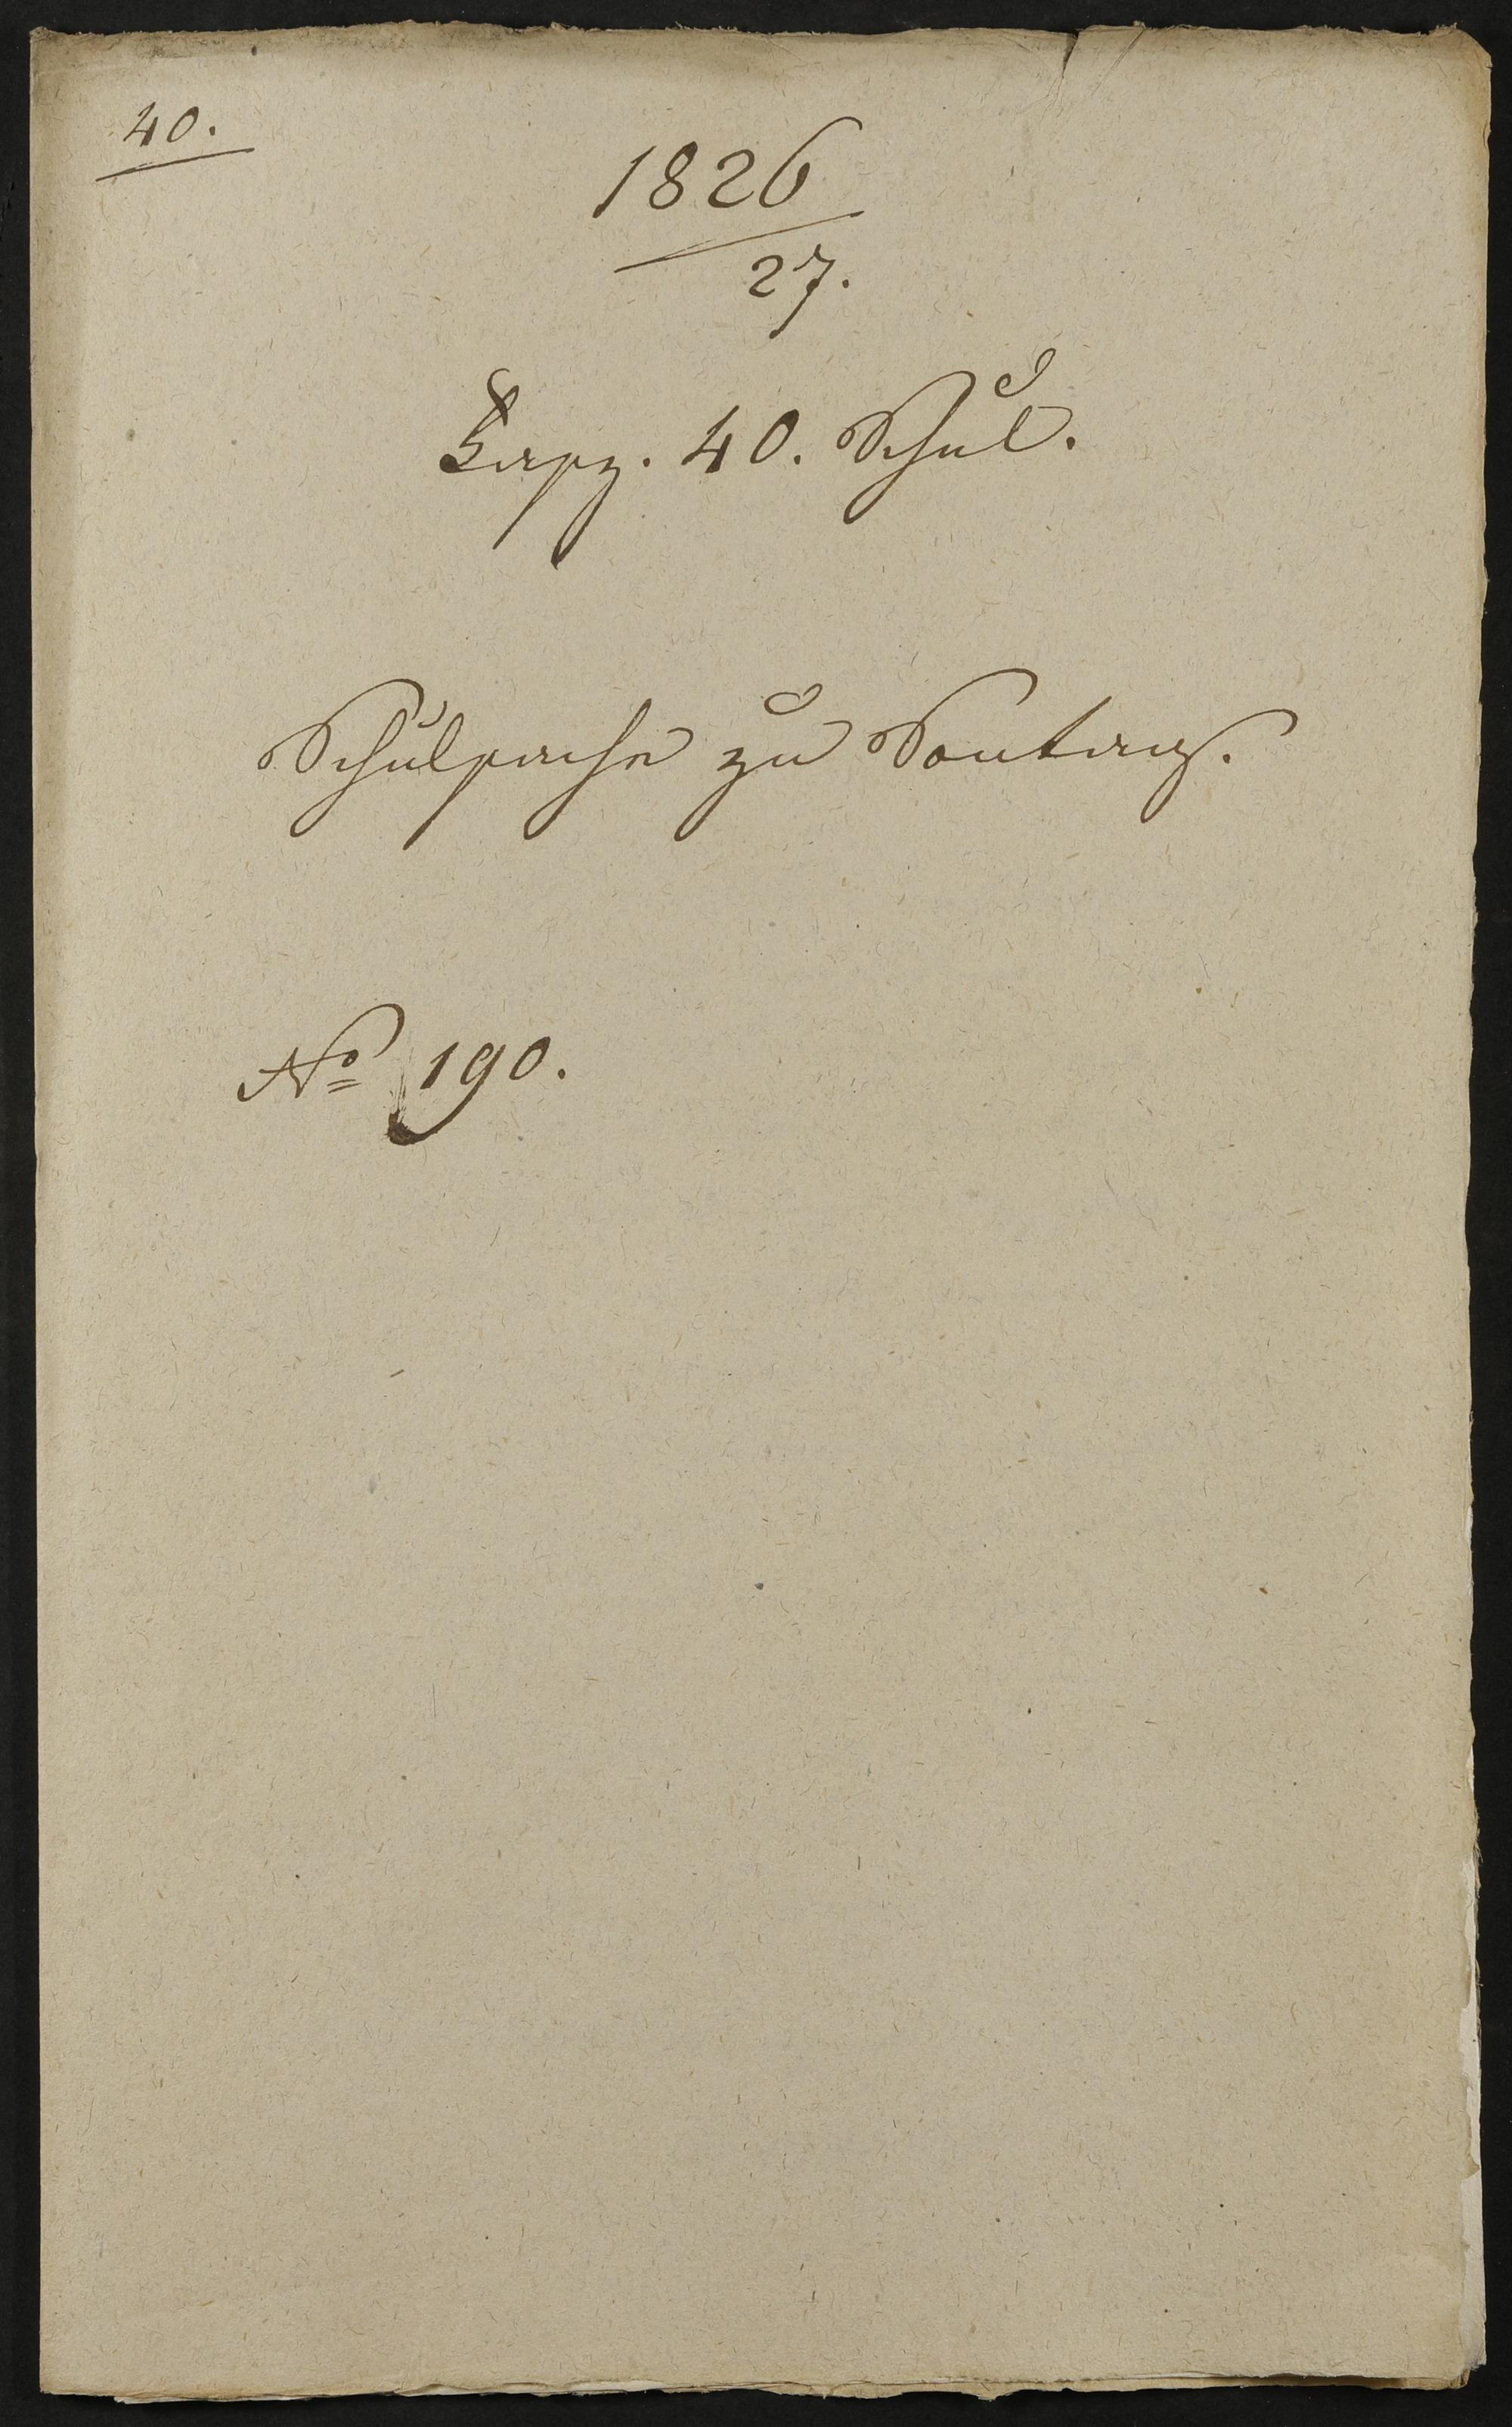 40.
1826
27.
Fasz. 40. Schul.
Schulsache zu Sontag.
No 190.